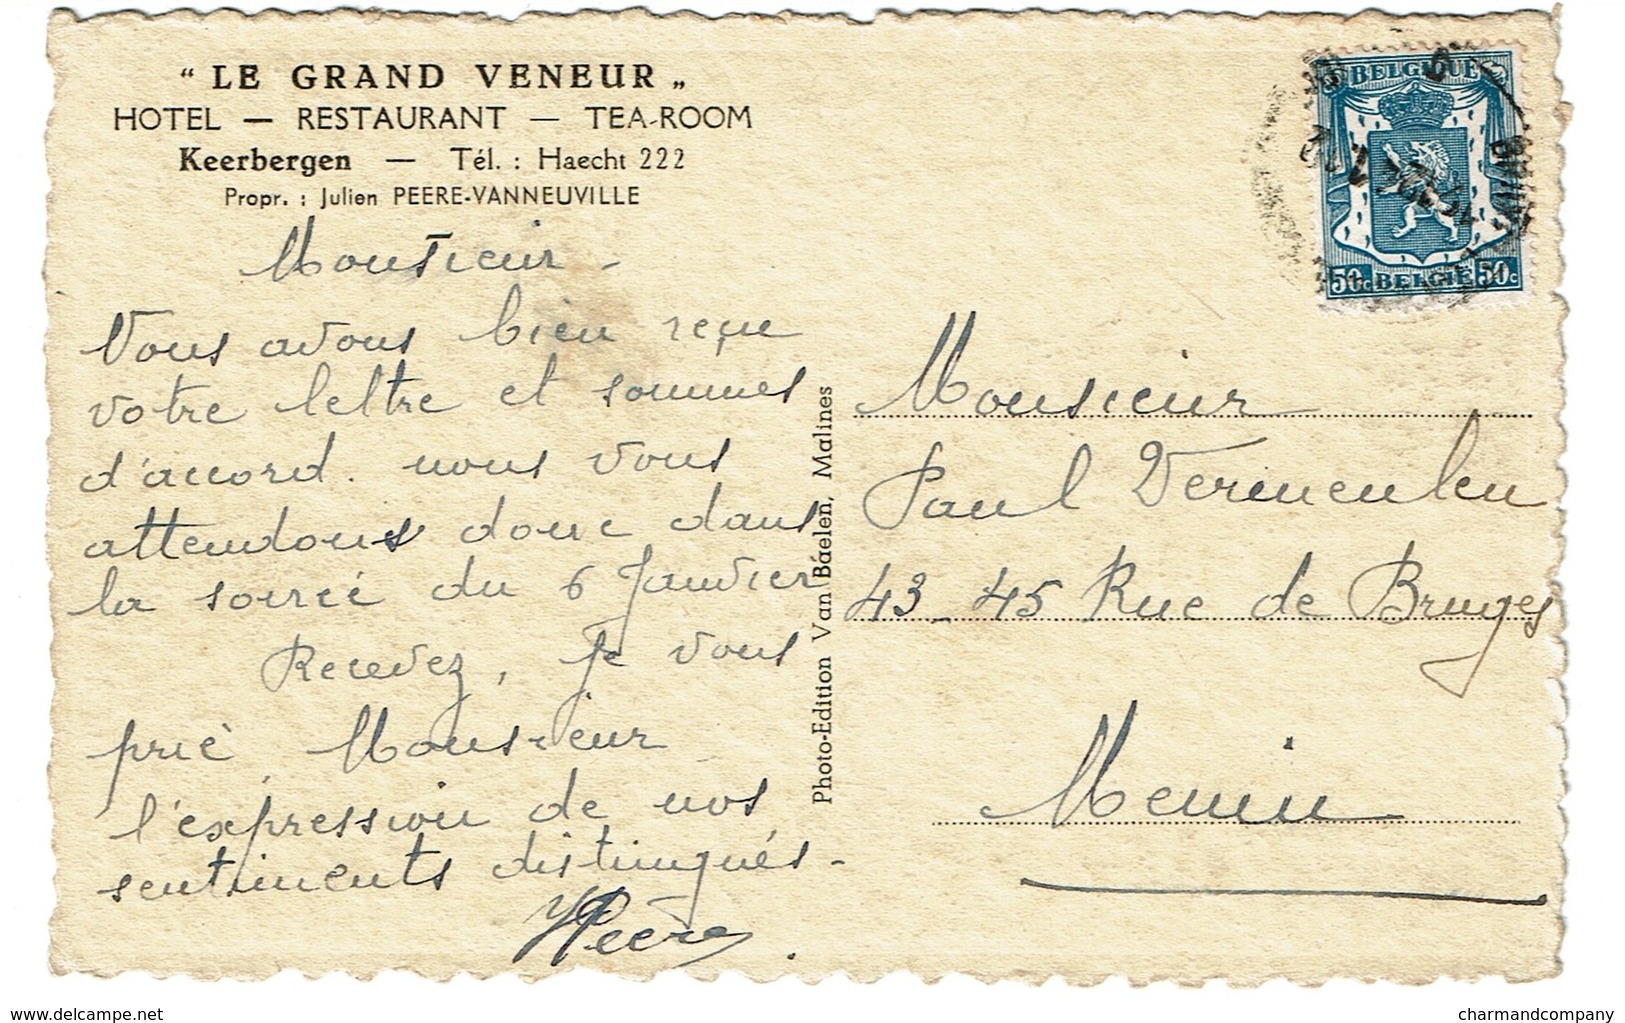 “ LE GRAND VENEUR „
HOTEL — RESTAURANT — TEA-ROOM
Keerbergen — Tél. : Haecht 222
Propr. : Julien PEERE-VANNEUVILLE
Monsieur -
Nous avons bien reçu
votre lettre et sommes
d'accord. nous vous
attendons donc dans
la soireé du 6 Janvier
Recevez, je vous
prie, Monsieur
l'expression de nos
sentiments distingués -
Peere
Photo-Edition Van Baelen, Malines
BELGIQUE
50c BELGIË 50c
Monsieur
Paul Vermeulen
43-45 Rue de Bruges
Menin
www.delcampe.net
charmandcompany